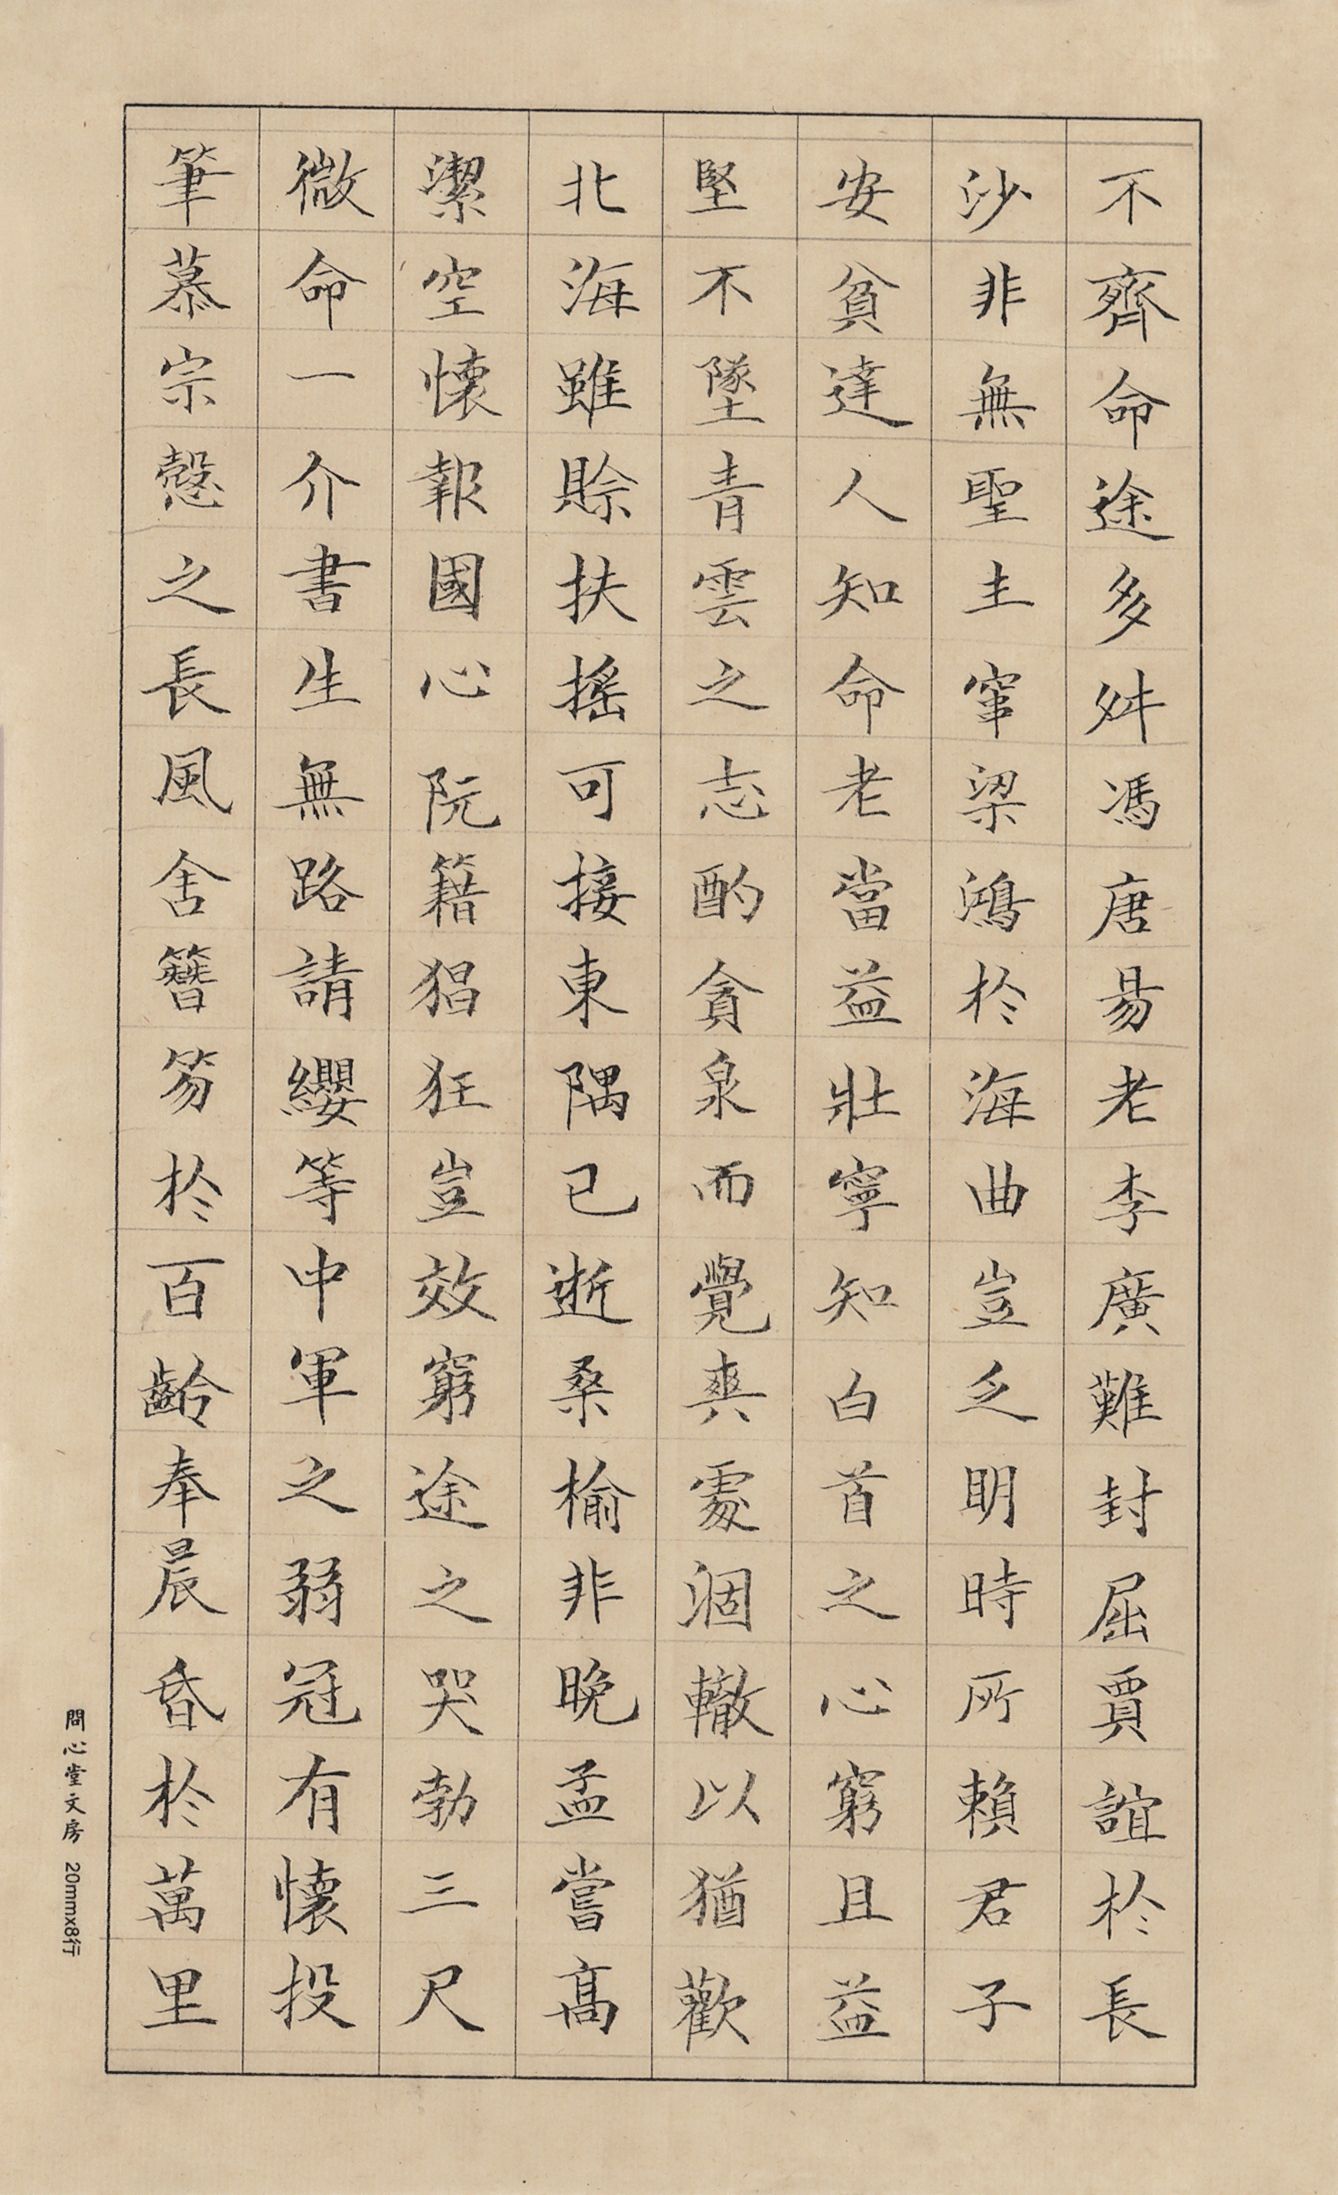 不齊命途多舛馮唐易老李廣難封屈賈誼於長
沙非無聖主窜梁鴻於海曲豈乏明時所賴君子
安貧達人知命老當益壯寧知白首之心窮且益
堅不墜青雲之志酌貪泉而覺爽處涸轍以猶歡
北海雖賒扶搖可接東隅已逝桑榆非晚孟嘗高
潔空懷報國心阮籍猖狂豈效窮途之哭勃三尺
微命一介書生無路請纓等中軍之弱冠有懷投
筆慕宗慤之長風舍簪笏於百齡奉晨昏於萬里
問心堂文房 20mmx8行